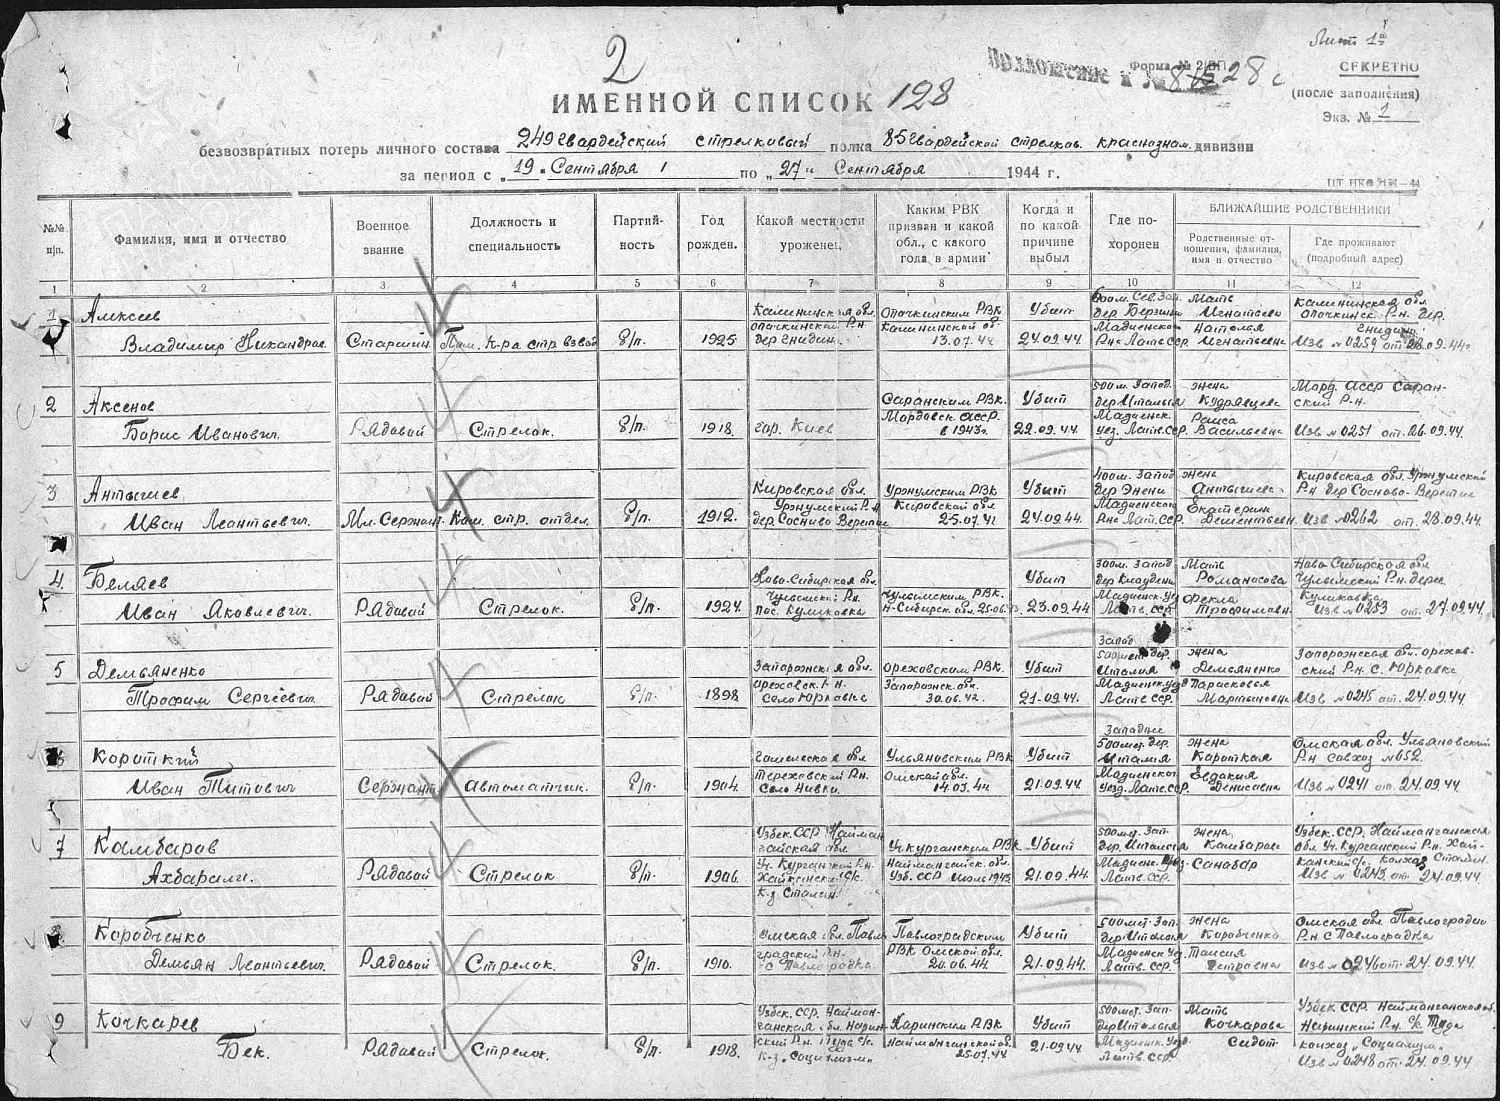 Лист 1й
2
Приложение к № 828с
Форма № 2/БП
СЕКРЕТНО
(после заполнения)
Экз. № 1
ИМЕННОЙ СПИСОК 128
безвозвратных потерь личного состава 249 гвардейский стрелковый полка 85 гвардейской стрелков. краснознам. дивизии
за период с „19" Сентября по „27" Сентября 1944 г.
№№ п/п.
Фамилия, имя и отчество
Военное звание
Должность и специальность
Партий- ность
Год рожден.
Какой местности уроженец
Каким РВК призван и какой обл., с какого года в армии
Когда и по какой причине выбыл
Где по- хоронен
БЛИЖАЙШИЕ РОДСТВЕННИКИ
Родственные от- ношения, фамилия, имя и отчество
Где проживают (подробный адрес)
1 2 3 4 5 6 7 8 9 10 11 12
1 Алексеев Калининская обл. Опочкинским РВК Убит 600 м. Сев. Зап. Мать Калининская обл.
Владимир Никандров. Старшин. Пом. К-ра стр. взвод б/п. 1925 Опочкинский Р-н дер Гнидин. Калининской об. 13.07.44 24.09.44 дер Берзини Мадиенского Р-на Латв. ССР. Игнатьева Наталья Игнатьевна Опочкинск. Р-н. дер. Гнидино Изв № 0259 от 28.09.44г
2 Аксенов Саранским РВК. Убит 500 м. Запад. жена Морд. АССР Саран-
Борис Иванович. Рядовой Стрелок. б/п. 1918. гор. Киев Мордовск. АССР. в 1943г. 22.09.44. дер Италия Мадиенск. уез. Латв. ССР. Кудрявцева Раиса Васильевна ский Р-н. Изв № 0251 от. 26.09.44.
3 Антышев Кировская обл. Уржумским РВК Убит 400 м. Запад жена Кировская обл. Уржумский
Иван Леонтьевич. Мл. Сержант. Ком. стр. отдел. б/п. 1912. Уржумский Р-н дер. Сосново Веретие Кировской обл 25.07.41 24.09.44. дер Энени Мадиенского Р-на Лат. ССР. Антышева Екатерин. Дементьевн. Р-н дер Сосново-Веретие Изв № 0262 от 28.09.44.
4. Беляев Ново-Сибирская обл. Убит 300 м. Запад. Мать Ново-Сибирская обл
Иван Яковлевич. Рядовой Стрелок. б/п. 1924. Чулымский Р-н. пос. Куликовка Чулымским РВК. Н-Сибирск. обл. 25.06. 23.09.44 Мадиенск. уез Латв. ССР. Романосова Фекла Трофимовн. Чулымский Р-н. дерев. Куликовка Изв № 0253 от. 27.09.44.
5 Демьяненко Запорожская обл. Ореховским РВК. Убит Запад 500 мет дер. жена Запорожская обл. Орехов-
Трофим Сергеевич Рядовой Стрелок б/п. 1898 Ореховск. Р-н. Село Юрковка Запорожск. обл. 30.06.42. 21.09.44. Италия Мадиенск. уезд Латв ССР. Демьяненко Парасковья Мартыновна ский Р-н. С. Юрковка Изв № 0245 от. 24.09.44.
6 Короткий Гомельская обл Ульяновским РВК Убит Западнее 500 мет. дер. жена Омская обл. Ульяновский
Иван Титович Сержант Автоматчик. б/п. 1904. Тереховский Р-н. Село Нивки Омской обл. 14.03.44 21.09.44 Италия Мадиенского уезд. Латв. ССР. Короткая Евдокия Денисовна Р-н совхоз № 652. Изв № 0241 от. 24.09.44
7 Камбаров Узбек. ССР. Найман- ганская обл. Уч-Курганским РВК. Убит 500 мет. Зап- жена Узбек. ССР. Найманганская
Ахбарали. Рядовой Стрелок б/п. 1906. Уч. Курганский Р-н. Хайканский с/с. К-з Сталин. Найманганск. обл. Узб. ССР Июль 1943 21.09.44. дер. Италия Мадиенск. уезд. Латв. ССР. Камбарова Санобор обл. Уч. Курганский Р-н. Хай- канский с/с. колхоз Сталин. Изв № 0243. от. 24.09.44
8 Коробченко Омская обл. Павло- Павлоградским Убит 500 мет. Зап- жена Омская обл. Павлоградско
Демьян Леонтьевич. Рядовой Стрелок. б/п. 1910. градский Р-н. -С Павлоградка. РВК Омской обл. 20.06.44. 21.09.44. дер Италия Мадиенск. Уез. Латв. ССР. Коробченко Таисия Петровна Р-н. С Павлоградка Изв № 0246 от. 24.09.44.
9 Кочкарев Узбек. ССР. Найман- Наринским РВК Убит 500 мет. Зап- Мать Узбек ССР. Найманганская об.
Бек. Рядовой Стрелок. б/п. 1918. ганская обл. Нарин- ский Р-н. Туда с/с. К-з „Социализм" Найманганской об. 25.07.44 21.09.44 дер Италия Мадиенск. Уезд. Латв. ССР. Кочкарова Сидот Наринский Р-н. с/с Туда колхоз „Социализм" Изв № 0248 от. 24.09.44